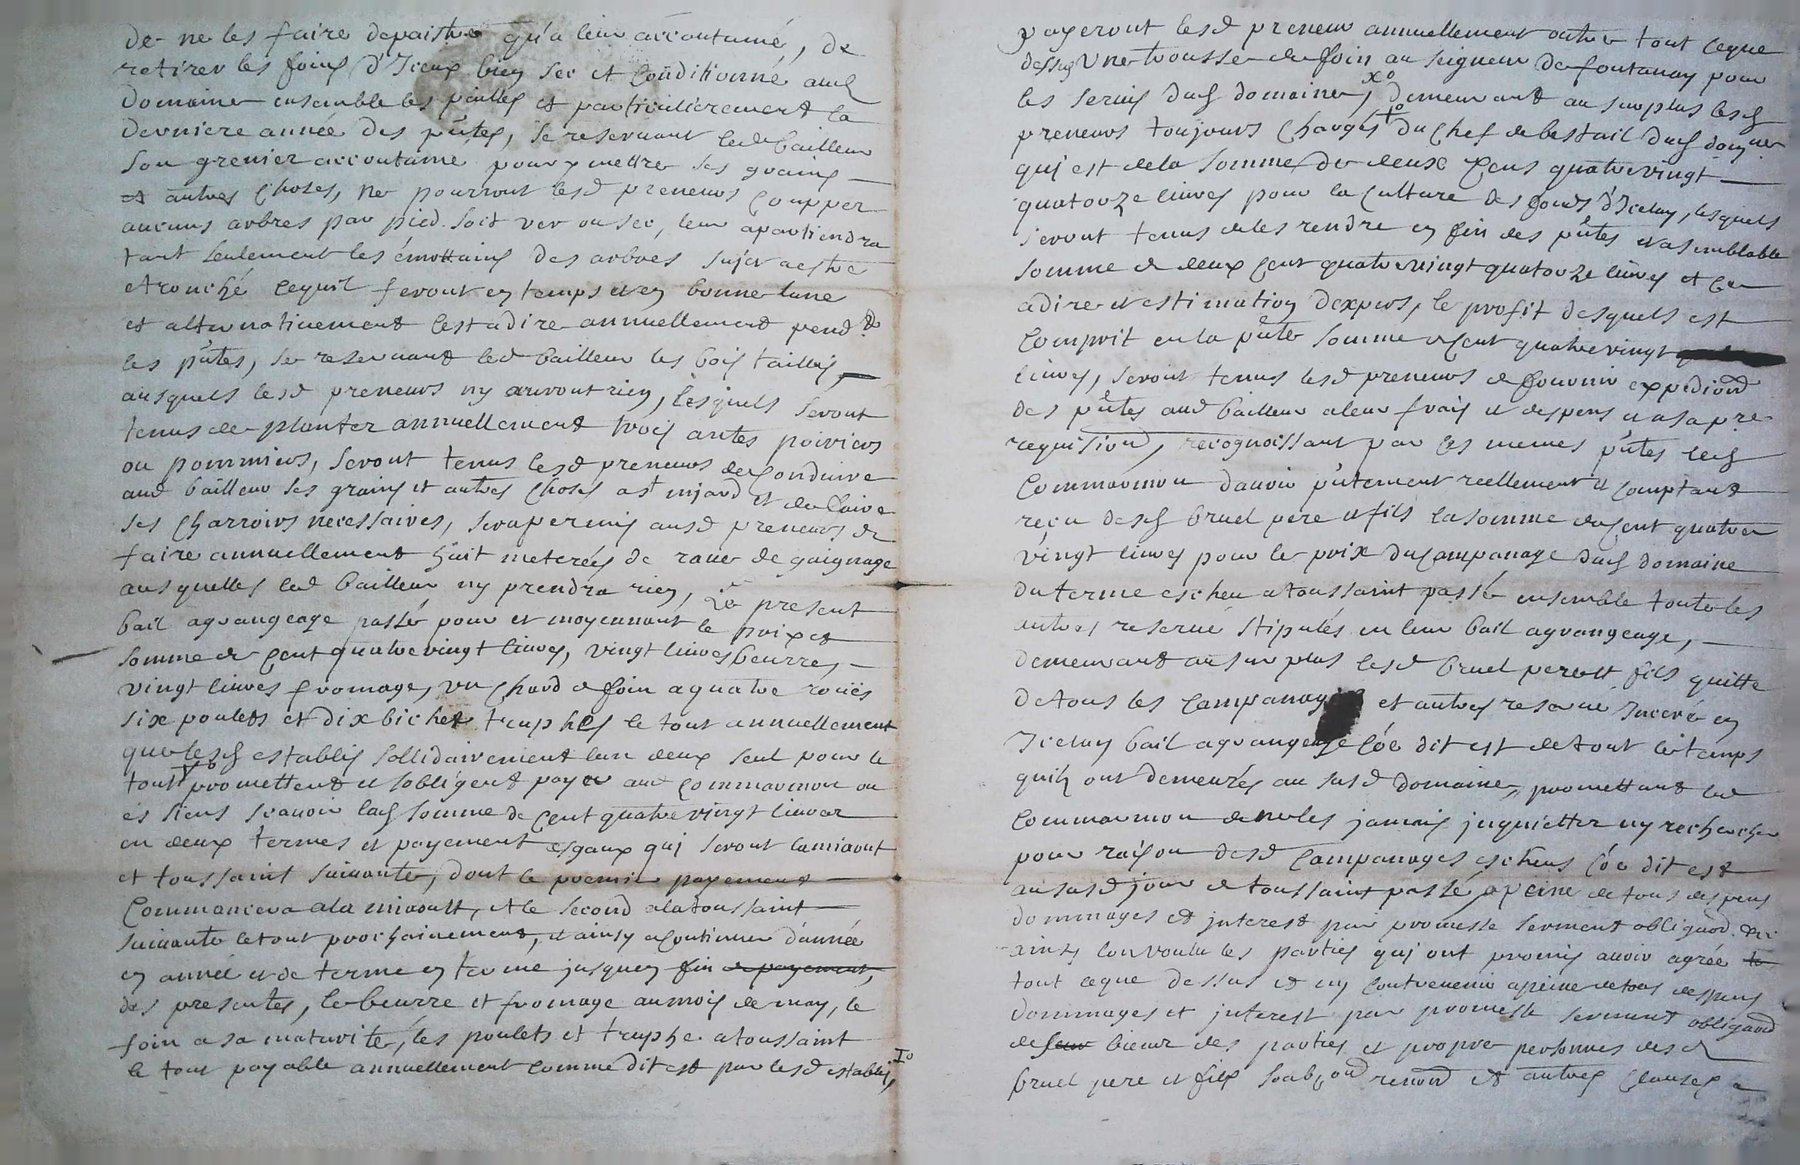 de ne les faire depaistre qu'a leur accoutumé, de
retirer les foins d'Iceux bien sec et conditionné aud
domaine ensemble les pailles et particulierement la
derniere année des p̃ntes, se reservant led bailleur
son grenier accoutumé pour y mettre ses grains
et autres choses, ne pourront lesd preneurs coupper
aucuns arbres par pied soit ver ou sec, leur apartiendra
tant seulement les émottains des arbres sujet aestre
etronché lequil feront en temps et en bonne lune
et alternativement cestadire annuellement pendt
les p̃ntes, se reservant led bailleur les bois taillis,
ausquels lesd preneurs ny auront rien, lesquels seront
tenus de planter annuellement trois antes poiriers
ou pommiers, seront tenus lesd preneurs de conduire
aud bailleur ses grains et autres choses a st et de faire
ses charroirs necessaires, sera permis ausd preneurs de
faire annuellement huit meterées de rave de gaignage
ausquelles led bailleur ny prendra rien, Le present
bail agrangeage passé pour et moyennant le prix et
somme de cent quatre vingt livres, vingt livres beurre,
vingt livres fromage, un chard de foin a quatre roües
six poulets et dix bichet truphes le tout annuellement
que lesd establis sollidairement lun deux seul pour le
tout promettent et sobligent payer aud commarmon ou
és siens scavoir lad somme de cent quatre vingt livres
en deux termes et payement esgaux qui seront lamiaout
et toussaint suivante, dont le premier payement
commancera ala miaoust, et le second alatoussaint
suivante le tout prochainement, et ainsy acontinuer d'année
en année et de terme en terme jusquen fin de payement,
des presentes, le beurre et fromage au mois de may, le
foin a sa maturité, les poulets et truphe atoussaint
le tout payable annuellement comme dit est par lesd establis,
payeront lesd preneur annuellement outre tout ceque
dessus une trousse de foin au seigneur de fontanay pour
les servis dud domaine, demeurant au surplus lesd
preneurs toujours chargés du chef de bestail dud domaine
qui est dela somme de deux cens quatrevingt
quatorze livres pour la culture des fonds d'Iceluy, lesquels
seront tenus de les rendre en fin des p̃ntes et asemblable
somme de deux cent quatrevingt quatorze livres et ce
adire et estimation dexpers, le profit desquels est
comprit en la p̃nte somme de cent quatrevingt
livres, seront tenus lesd preneurs de fournir expediond
des p̃ntes aud bailleur a leur frais et despens et asa pre
requisition, recognoissant par les memes p̃ntes led
commarmon davoir p̃ntement reellement et comptant
recu desd bruel pere et fils la somme de cent quatre
vingt livres pour le prix du campanage dud domaine
du terme escheu atoussaint passé ensemble toute les
autres reserve stipulés en leur bail agrangeage,
demeurant au surplus lesd bruel pere et fils quitte
detous les campanages et autres reserve Inseré en
Iceluy bail agrangeage cõe dit est detout le temps
quils ont demeurés au susd domaine, promettant led
commarmon de neles jamais inquietter ny rechercher
pour raison desd campanages escheus cõe dit est
au susd jour de toussaint passé apeine de tous despens
dommages et interest par promesse serment obligaõn
ainsy lon voulu les parties qui ont promis avoir agréé
tout ceque dessus et ny contrevenir apeine detous despens
dommages et interest par promesse serment obligaond
de leur bieux des parties et propre personnes desd
bruel pere et fils renond et autres clauses